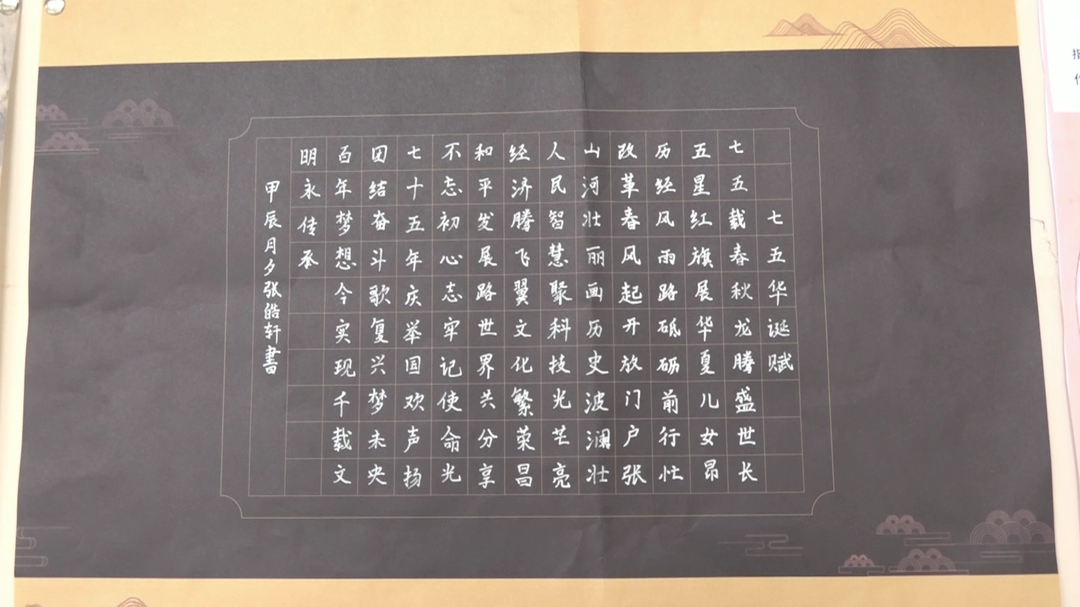 七五华诞赋
七五载春秋龙腾盛世长
五星红旗展华夏儿女昂
历经风雨路砥砺前行忙
改革春风起开放门户张
山河壮丽画历史波澜壮
人民智慧聚科技光芒亮
经济腾飞翼文化繁荣昌
和平发展路世界共分享
不志初心志牢记使命光
七十五年庆举国欢声扬
团结奋斗歌复兴梦未央
百年梦想今实现千载文
明永传承
甲辰月夕张皓轩書